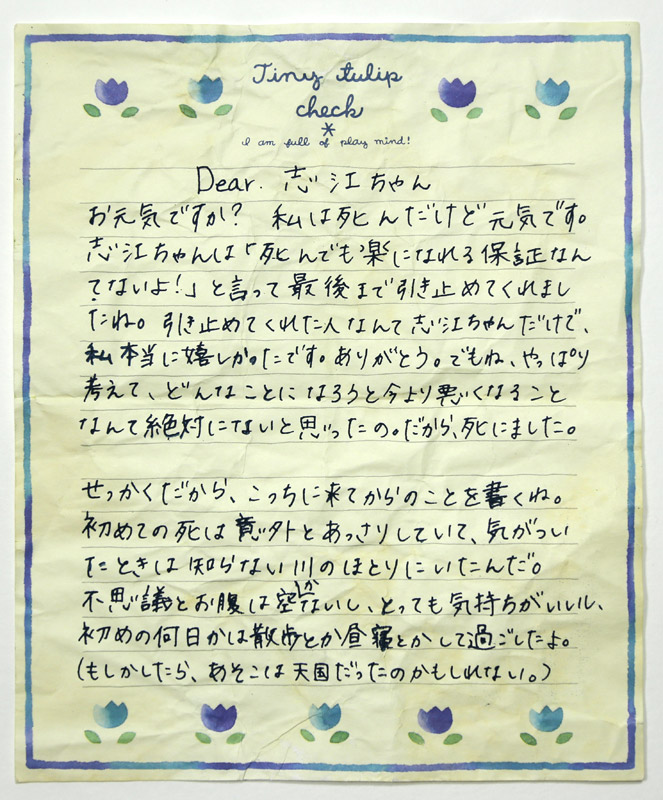 Tiny tulip
check
*
I am full of play mind!
Dear. 志江ちゃん
お元気ですか? 私は死んだけど元気です。
志江ちゃんは「死んでも楽になれる保証なん
てないよ!」と言って最後まで引き止めてくれまし
たね。引き止めてくれた人なんて志江ちゃんだけで、
私本当に嬉しかったです。ありがとう。でもね、やっぱり
考えて、どんなことになろうと今より悪くなること
なんて絶対にないと思ったの。だから、死にました。
せっかくだから、こっちに来てからのことを書くね。
初めての死は意外とあっさりしていて、気がつい
たときは知らない川のほとりにいたんだ。
不思議とお腹は空かないし、とっても気持ちがいいし、
初めの何日かは散歩とか昼寝とかして過ごしたよ。
(もしかしたら、あそこは天国だったのかもしれない。)